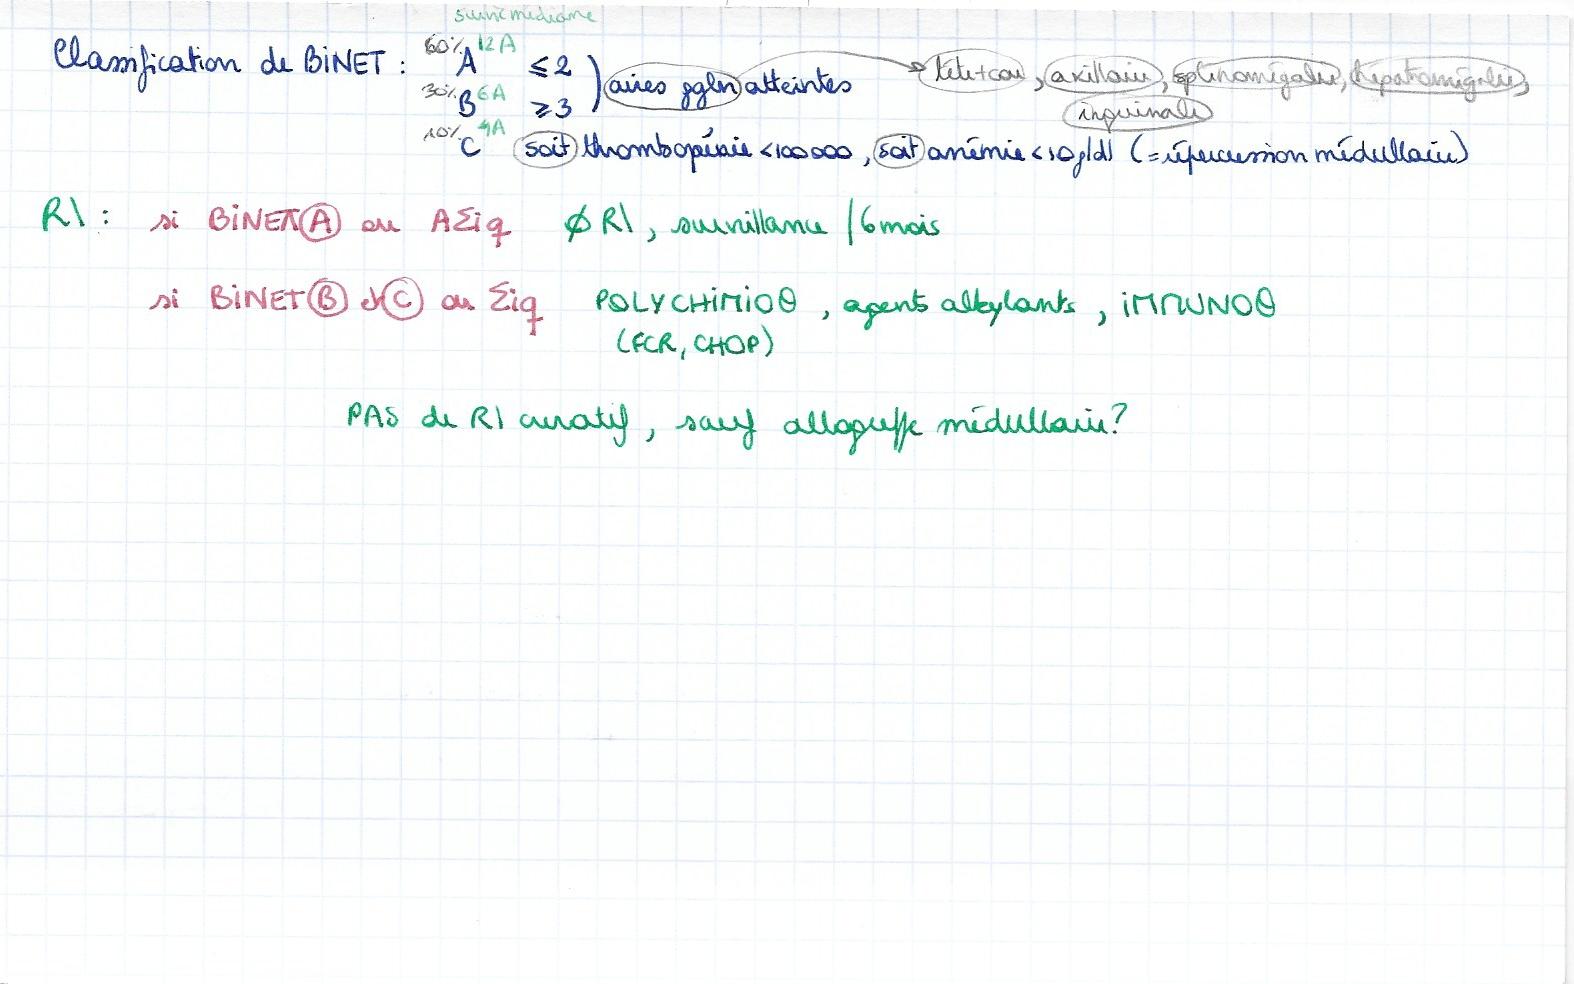 survie médiane
Classification de BiNET : 60% A 12A ≤ 2 ) aires gglR atteintes → tête+cou, axillaire, splénomégalie, hépatomégalie,
30% B 6A ≥ 3 inguinale
10% C 4A soit thrombopénie < 100 000, soit anémie < 10g/dl (= répercussion médullaire)
R\ : si BiNET A ou AΣiq ∅ R\, surveillance / 6 mois
si BiNET B et C ou Σiq POLYCHIMIOΘ, agents alkylants, iMMUNOΘ
(FCR, CHOP)
PAS de R\ curatif, sauf allogreffe médullaire?